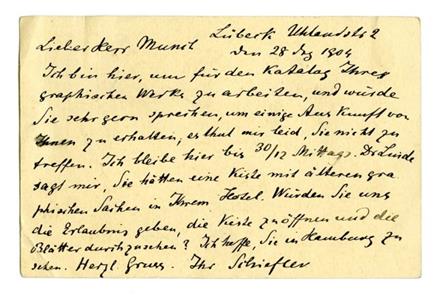 Lübeck Uhlandstr 2
Lieber Herr Munch den 28 Dez 1904
Ich bin hier, um für den Katalog Ihres
graphischen Werks zu arbeiten, und würde
Sie sehr gern sprechen, um einige Auskunft von
Ihnen zu erhalten, es thut mir leid, Sie nicht zu
treffen. Ich bleibe hier bis 30/12 Mittags. Dr Linde
sagt mir, Sie hätten eine Kiste mit älteren gra
phischen Sachen in Ihrem Hotel. Würden Sie uns
die Erlaubnis geben, die Kiste zu öffnen und die
Blätter durchzusehen? Ich hoffe, Sie in Hamburg zu
sehen. Herzl. Gruss. Ihr Schiefler